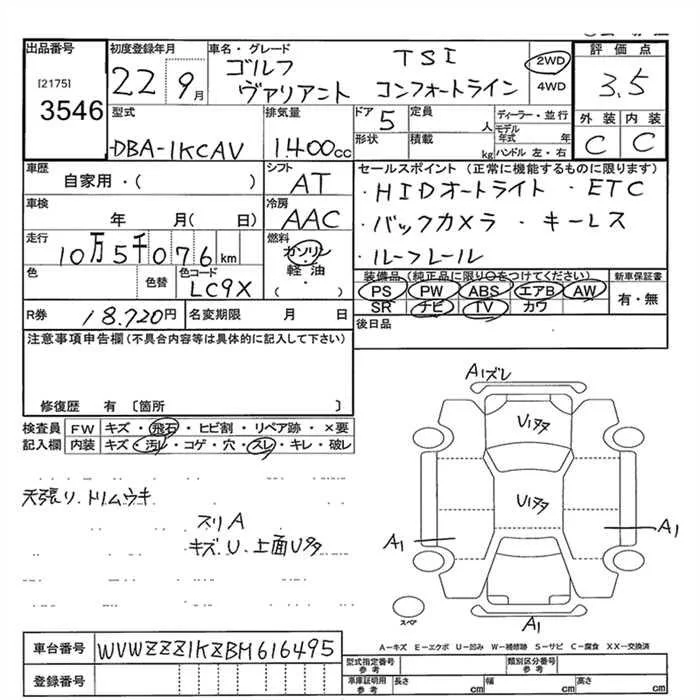 出品番号
[2175]
3546
初度登録年月
22 9月
車名・グレード
TSI
ゴルフ
ヴァリアント コンフォートライン
2WD
4WD
評価点
3.5
外装 内装
C C
型式
DBA-1KCAV
排気量
1400cc
ドア 5
定員 人
形状
積載 kg
ディーラー・並行
モデル年式 年
ハンドル 左・右
車歴
自家用・( )
シフト
AT
セールスポイント (正常に機能するものに限ります)
・HIDオートライト ・ETC
・バックカメラ ・キーレス
・ルーフレール
車検
年 月( 日)
冷房
AAC
走行
10万5千076km
燃料
ガソリン
軽油
・
( )
色
色替
色コード
LC9X
装備品(純正品に限り○をつけてください)
PS PW ABS エアB AW
SR ナビ TV カワ
新車保証書
有・無
R券
18,720円
名変期限 月 日
後日品
注意事項申告欄(不具合内容等は具体的に記入して下さい)
修復歴 有 〔箇所 〕
検査員記入欄
FW キズ・飛石・ヒビ割・リペア跡・×要
内装 キズ・汚レ・コゲ・穴・スレ・キレ・破レ
天張り、トリムウキ
スリA
キズ、U、上面Uタタ
A1ズレ
Uタタ
Uタタ
A1
A1
A1
スペア
A-キズ E-エクボ U-凹み W-補修跡 S-サビ C-腐食 XX-交換済
車台番号
WVWZZZ1KZBM616495
登録番号
型式指定番号 参考
類別区分番号 参考
車庫証明用 参考
長さ cm
幅 cm
高さ cm